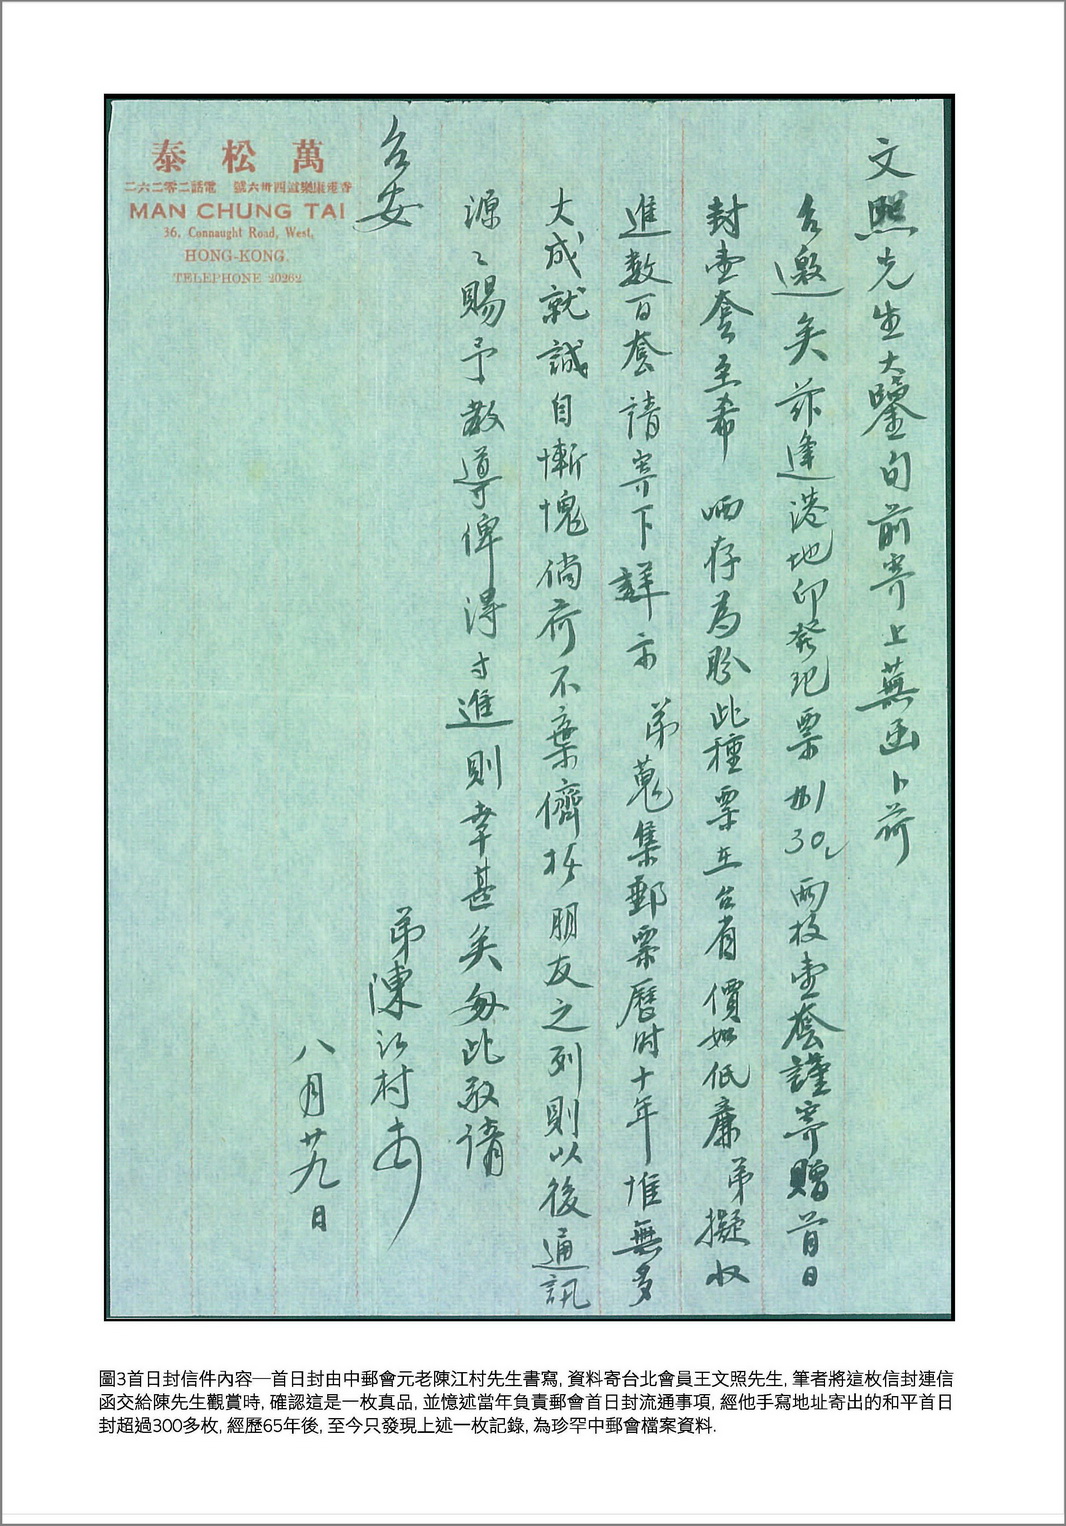 萬松泰
香港康樂道西卅六號 電話二零二六二
MAN CHUNG TAI
36, Connaught Road, West,
HONG-KONG.
TELEPHONE 20262
文照先生大鑒旬前寄上蕪函卜荷
台邀矣茲逢港地印發紀票 30c 兩枚壹套謹寄贈首日
封壹套至希 哂存為盼此種票在台省價如低廉弟擬收
進數百套請寄下詳示 弟蒐集郵票歷时十年惟無多
大成就誠自慚愧倘荷不棄儕於朋友之列則以後通訊
源〻賜予教導俾得寸進則幸甚矣匆此敬請
台安
弟陳江村
八月廿九日
圖3首日封信件內容─首日封由中郵會元老陳江村先生書寫, 資料寄台北會員王文照先生, 筆者將這枚信封連信
函交給陳先生觀賞時, 確認這是一枚真品, 並憶述當年負責郵會首日封流通事項, 經他手寫地址寄出的和平首日
封超過300多枚, 經歷65年後, 至今只發現上述一枚記錄, 為珍罕中郵會檔案資料.